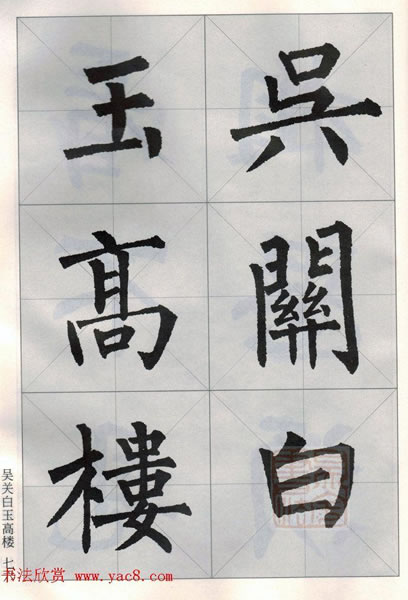 吳關白
玉髙樓
吴关白玉高楼 七
书法欣赏 www.yac8.com